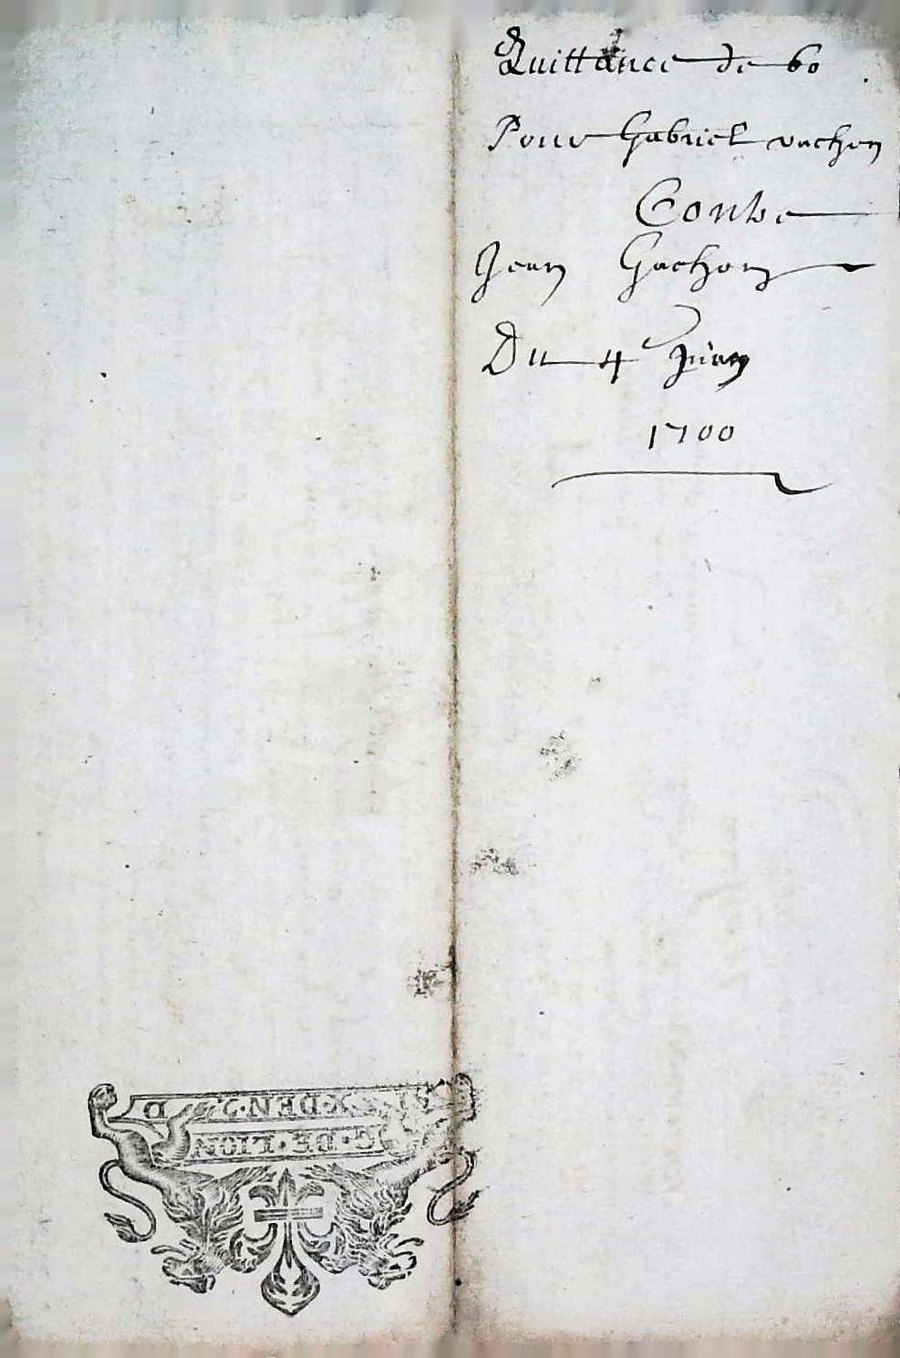 Quittance de 60
Pour Gabriel vachon
Contre
Jean Gachon
Du 4e Juin
1700
G·DE·LION
X·DEN·
D